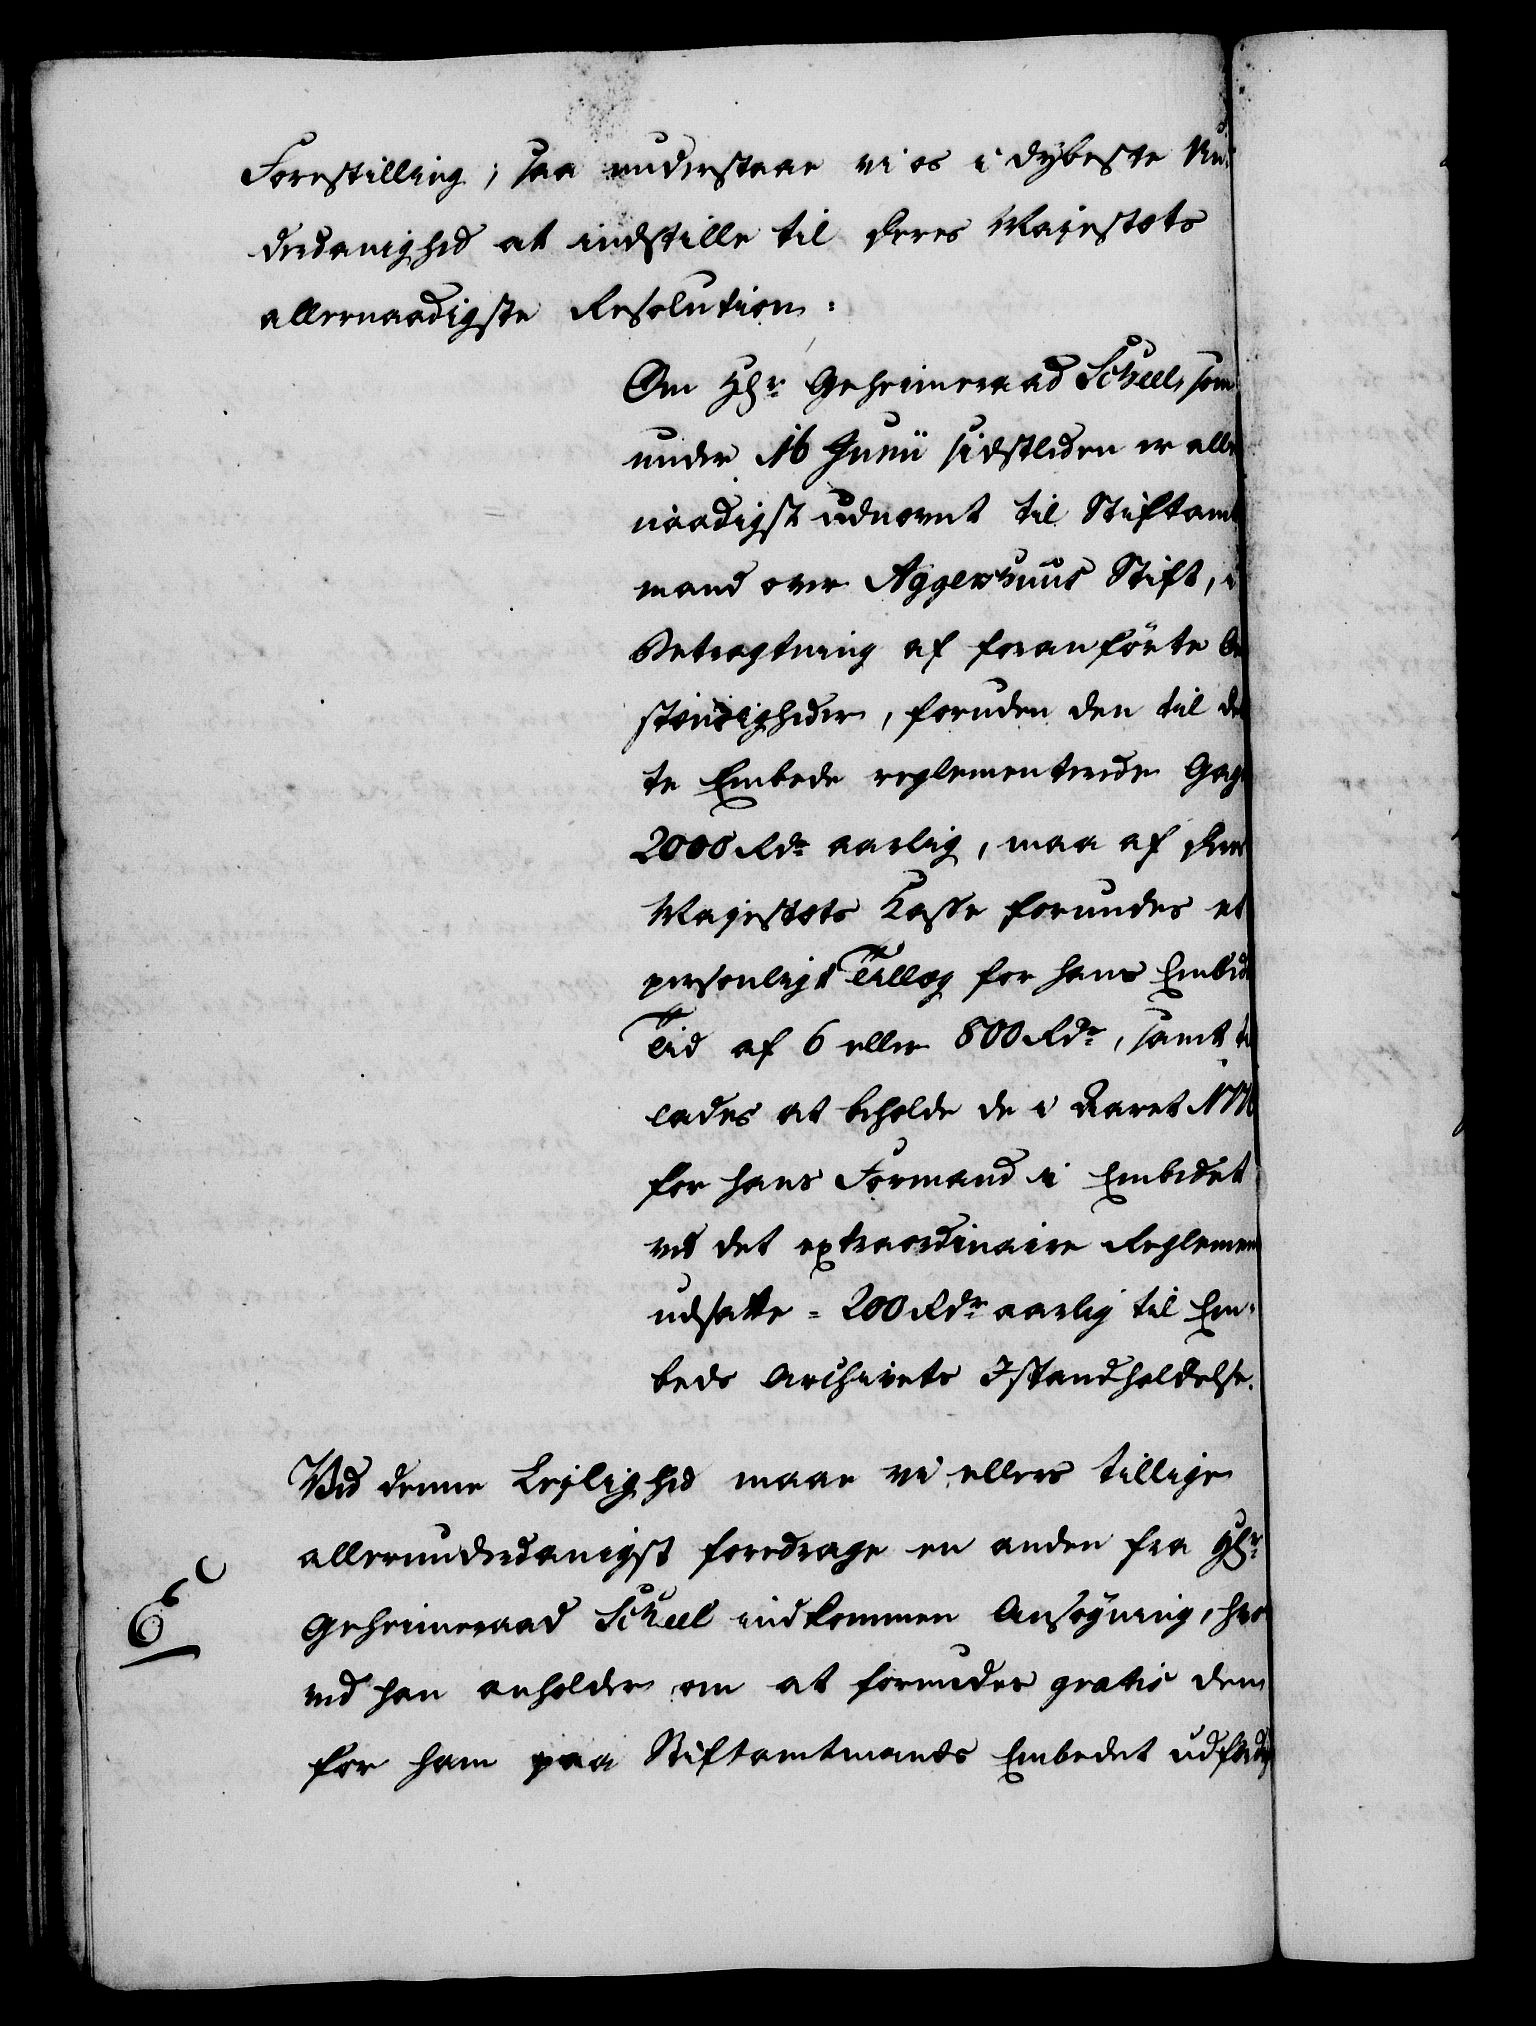 Forestilling; saa understaae vi os i dybeste Un-
derdanighed at indstille til Deres Majestæts
allernaadigste Resolution:
Om Hr. Geheimeraad Scheel, som
under 16 Junii sidstleden er aller
naadigst udnævnt til Stiftamt
mand over Aggershuus Stift, i
Betragtning af foranførte Om
stændigheder, foruden den til det
te Embede reglementerede Gage
2000 Rdr. aarlig, maa af Deres
Majestæts Casse forundes et
personligt Tillæg for hans Embeds
Tid af 6 eller 800 Rdr., samt til
lades at beholde de i Aaret
for hans Formand i Embedet
ved det extraordinaire Reglement
udsatte = 200 Rdr. aarlig til Em-
beds Archivets Istandholdelse.
Ved denne Lejlighed maae vi ellers tillige
allerunderdanigst foredrage en anden fra Hr.
6
Geheimeraad Scheel indkommen Ansøgning, hvor
ved han anholder om at forundes gratis den
for ham paa Stiftamtmands Embedet udfærdig